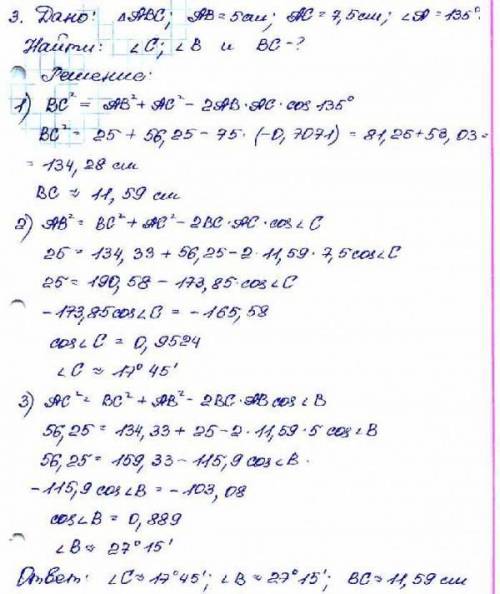 3. Дано: △ABC; AB = 5 см; AC = 7,5 см; ∠A = 135°.
Найти: ∠C; ∠B и BC - ?
Решение:
1) BC² = AB² + AC² - 2AB · AC · cos 135°
BC² = 25 + 56,25 - 75 · (-0,7071) = 81,25 + 53,03 =
= 134,28 см
BC ≈ 11,59 см
2) AB² = BC² + AC² - 2BC · AC · cos∠C
25 = 134,33 + 56,25 - 2 · 11,59 · 7,5 cos∠C
25 = 190,58 - 173,85 · cos∠C
-173,85 cos∠C = -165,58
cos∠C = 0,9524
∠C ≈ 17°45'
3) AC² = BC² + AB² - 2BC · AB cos∠B
56,25 = 134,33 + 25 - 2 · 11,59 · 5 cos∠B
56,25 = 159,33 - 115,9 cos∠B.
-115,9 cos∠B = -103,08
cos∠B = 0,889
∠B ≈ 27°15'
Ответ: ∠C ≈ 17°45'; ∠B ≈ 27°15'; BC ≈ 11,59 см